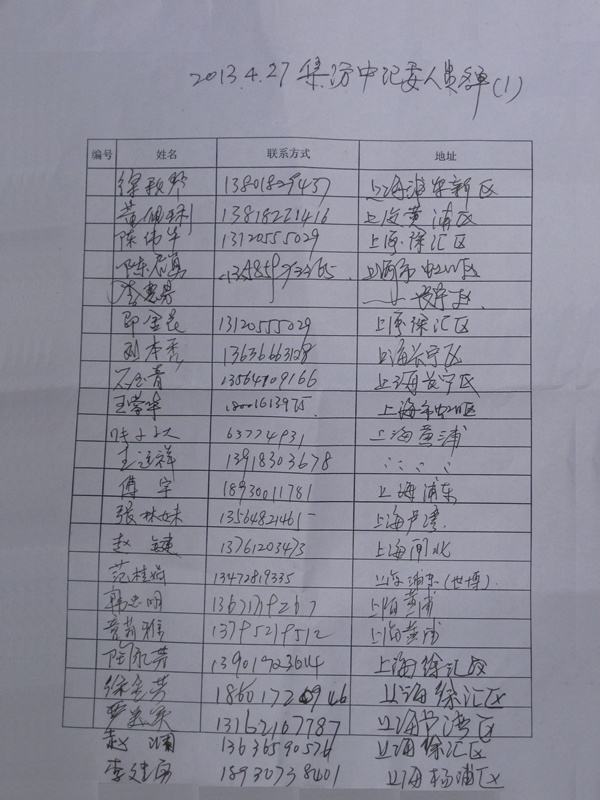 2013.4.27 集访中纪委人员名单(1)
编号 姓名 联系方式 地址
13801829437 上海浦东新区
黄 13818221416 上海黄浦区
陈伟华 13120555029 上海徐汇区
陈 上海市虹口区
李惠
邵金 13120555029 上海徐汇区
刘本秀 13636663128 上海长宁区
石金青 13564709166 上海长宁区
王 18001613975 上海市虹口区
63774931 上海黄浦
王运祥 13918303678
傅宇 18930011781 上海浦东
张林妹 13564821461 上海卢湾
赵健 13761203473 上海闸北
范桂娟 13472819335 上海浦东(世博)
韩忠明 13671719267 上海黄浦
13795219512 上海黄浦
陶永芳 13901723644 上海徐汇区
徐金芳 上海徐汇区
13162107787 上海卢湾区
赵 13636590526 上海徐汇区
李建 18930738401 上海杨浦区